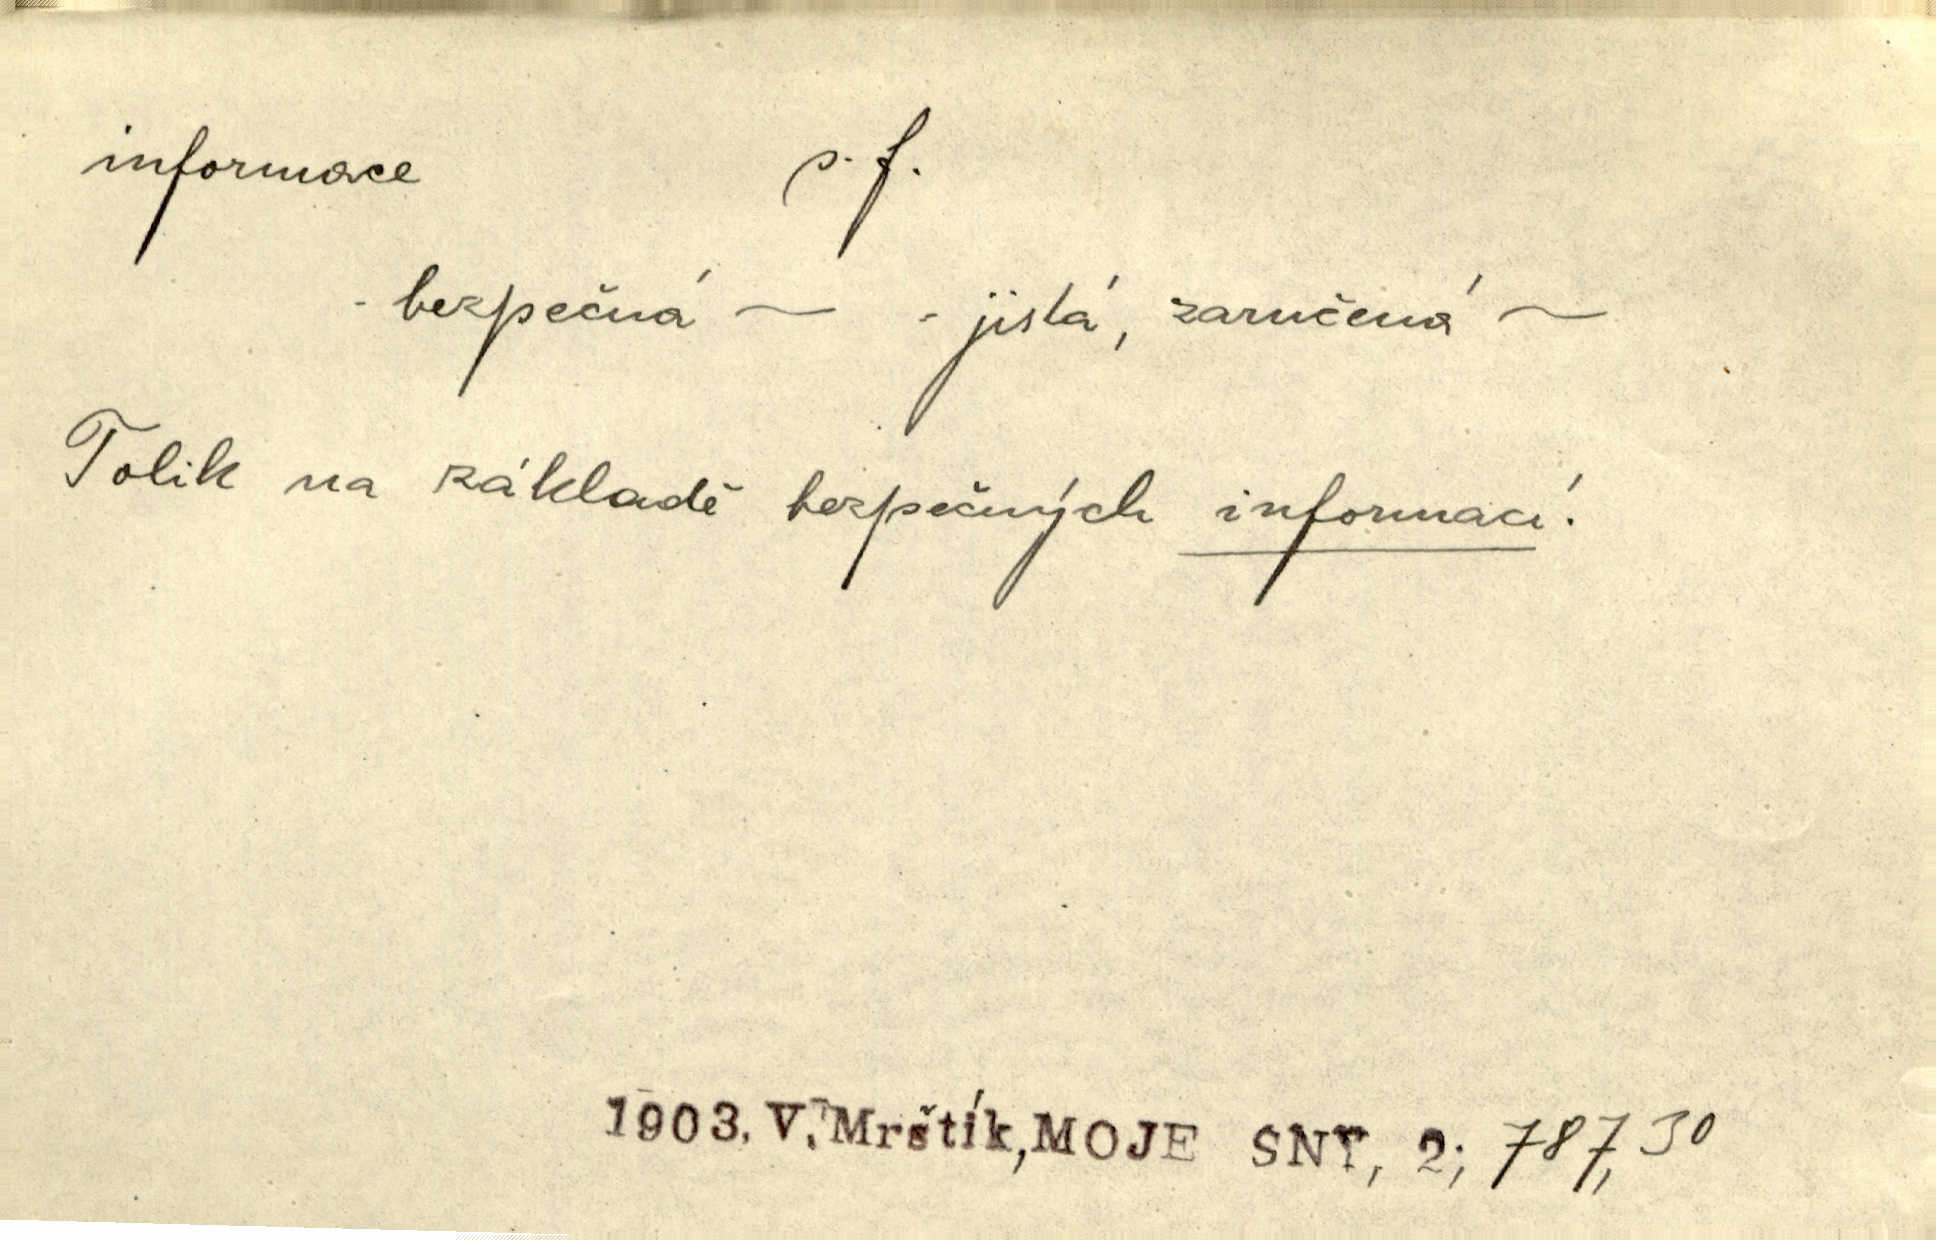 informace s. f.
- bezpečná ~ - jistá, zaručená ~
Tolik na základě bezpečných informací.
1903. V. Mrštík, MOJE SNY, 2; 787, 30